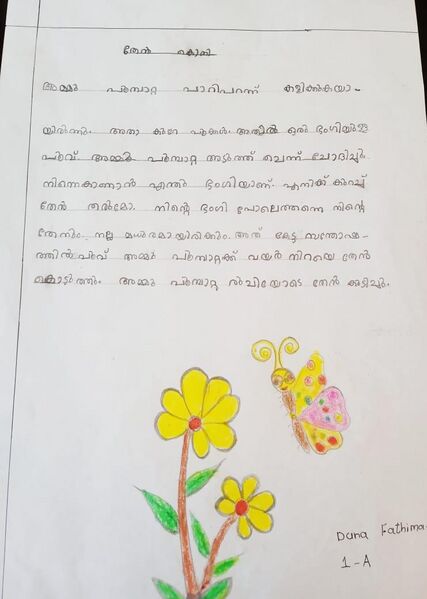 തേൻ കൊതി
അമ്മു പൂമ്പാറ്റ പാറിപറന്ന് കളിക്കുകയാ-
യിരുന്നു. അതാ കുറേ പൂക്കൾ. അതിൽ ഒരു ഭംഗിയുള്ള
പൂവ്. അമ്മു പൂമ്പാറ്റ അടുത്ത് ചെന്ന് ചോദിച്ചു.
നിന്നെകാണാൻ എന്തു ഭംഗിയാണ്. എനിക്ക് കുറച്ച്
തേൻ തരുമോ. നിന്റെ ഭംഗി പോലെത്തന്നെ നിന്റെ
തേനും നല്ല മധുരമായിരിക്കും. അത് കേട്ട സന്തോഷ-
ത്തിൽ പൂവ് അമ്മു പൂമ്പാറ്റക്ക് വയർ നിറയെ തേൻ
കൊടുത്തു. അമ്മു പൂമ്പാറ്റ രുചിയോടെ തേൻ കുടിച്ചു.
Duna Fathima
1-A